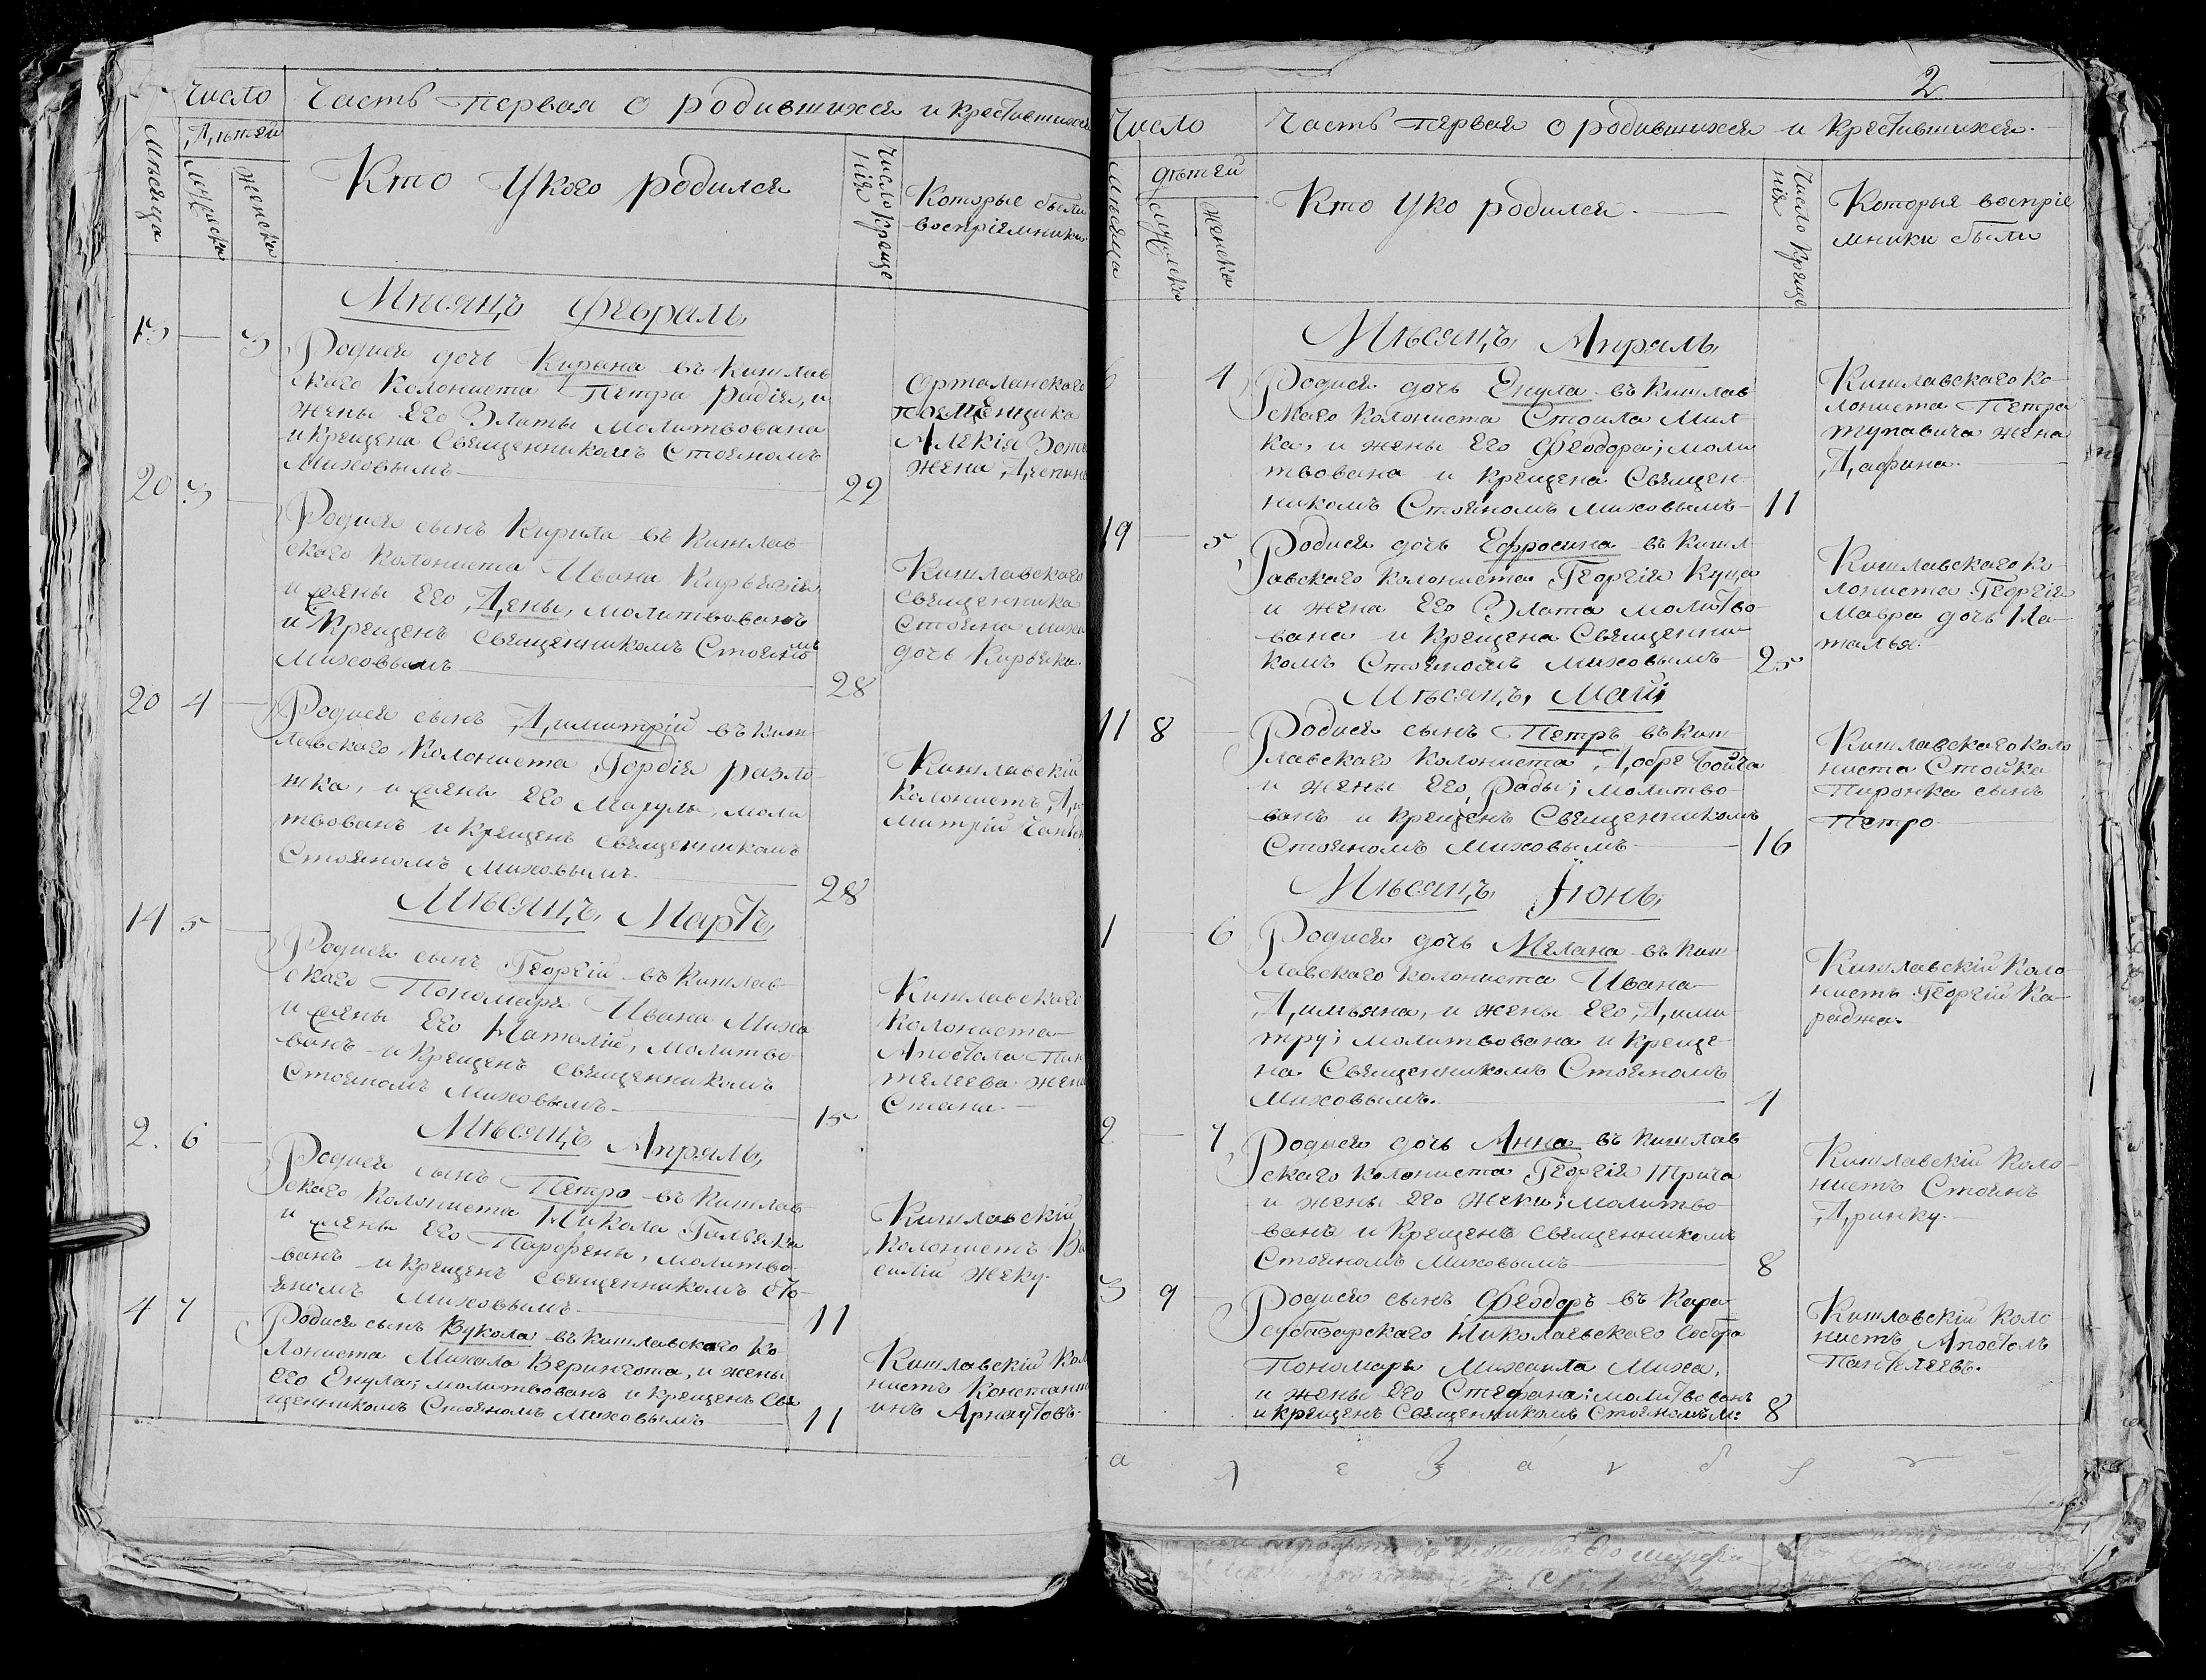 Число
Часть первая о родившихся и крестившихся
Мѣсяца
Дѣтей
Мужеска
Женска
Кто Укого родился
Число креще
нія
Которые были
воспріемники
Мѣсяцъ Февраль
13 — 3
Родися дочь Кирана въ Кишлав
скаго Колониста Петра Радія, и
жены Его Златы молитвована
и крещена Священникомъ Стояномъ
Миховымъ
22
Орталанского
помещика
Алекія
жена
20 3 —
Родися сынъ Кирила въ Кишлав
скаго Колониста Ивана
и жены Его Дены, молитвованъ
и Крещенъ священникомъ Стояномъ
Миховымъ
28
Кишлавского
священника
Стояна
дочь Кирьяки
20 4 —
Родися сынъ Димитрій въ Киш
лавского Колониста Гордія Разло
жка, и жены Его моли
твованъ и Крещенъ священникомъ
Стояномъ Миховымъ
28
Кишлавскій
Колонистъ Ди
митрій
Мѣсяцъ Мартъ
14 5 —
Родися сынъ Георгій въ Кишлав
ского Пономаря Ивана Миха
и жены Его Наталіи, молитво
ванъ и Крещенъ священникомъ
Стояномъ Миховымъ
15
Кишлавского
Колониста
Апостола Пан
телеева жена
Стана.
Мѣсяцъ Апрѣль
2. 6 —
Родися сынъ Петро въ Кишлав
скаго Колониста Никола
и жены Его Парофены, молитво
ванъ и Крещенъ священникомъ Сто
яномъ Миховымъ
11
Кишлавскій
Колонистъ Ва
силій Жеку.
4 7 —
Родися сынъ Вукола въ Кишлавского Ко
лониста Михала Верингота, и жены
Его Енула; молитвованъ и Крещенъ Свя
щенникомъ Стояномъ Миховымъ
11
Кишлавскій Кол
нистъ Констант
инъ Арнаутовъ.
2
Число
Часть первая о родившихся и Крестившихся.
Мѣсяца
дѣтей
Мужеска
Женска
Кто Уко родился.
Число Креще
нія
Которыя воспріе
мники были
Мѣсяцъ Апрѣль
6 4
Родися дочь Енула въ Кишлав
ского Колониста Стоила Мил
ка, и жены Его Феодора; моли
твована и Крещена Священ
никомъ Стояномъ Миховымъ
11
Кишлавского ко
лониста Петра
жена
Дафина.
19 — 5
Родися дочь Ефросина въ Кишл
авского Колониста Георгія Куца
и жена Его Злата молитво
вана и Крещена Священни
комъ Стояномъ Миховымъ
25
Кишлавского ко
лониста Георгія
Мавра дочь На
талья.
Мѣсяцъ Май
11 8 —
Родися сынъ Петръ въ Киш
лавского Колониста Добре Бойча
и жены Его, Рады; молитво
ванъ и Крещенъ Священникомъ
Стояномъ Миховымъ
16
Кишлавского коло
ниста Стойка
Пиронка сынъ
Петро
Мѣсяцъ Іюнь
1 — 6
Родися дочь Мелана въ Киш
лавского Колониста Ивана
Димьяна, и жены Его, Дими
тру; молитвована и Креще
на Священникомъ Стояномъ
Миховымъ.
4
Кишлавскій Коло
нистъ Георгій Ка
раджа.
2 — 7
Родися дочь Анна въ Кишлав
ского Колониста Георгія
и жены Его Жеки; молитво
ванъ и Крещенъ священникомъ
Стояномъ Миховымъ
8
Кишлавскій Коло
нистъ Стоянъ
Дринку.
3 9 —
Родися сынъ Феодоръ въ Кара
субазарского Николаевского Собора
Пономаря Михаила Миха,
и жены Его Стефана; молитвованъ
и крещенъ Священникомъ Стояномъ М:
8
Кишлавскій Коло
нистъ Апостолъ
Пантелеевъ.